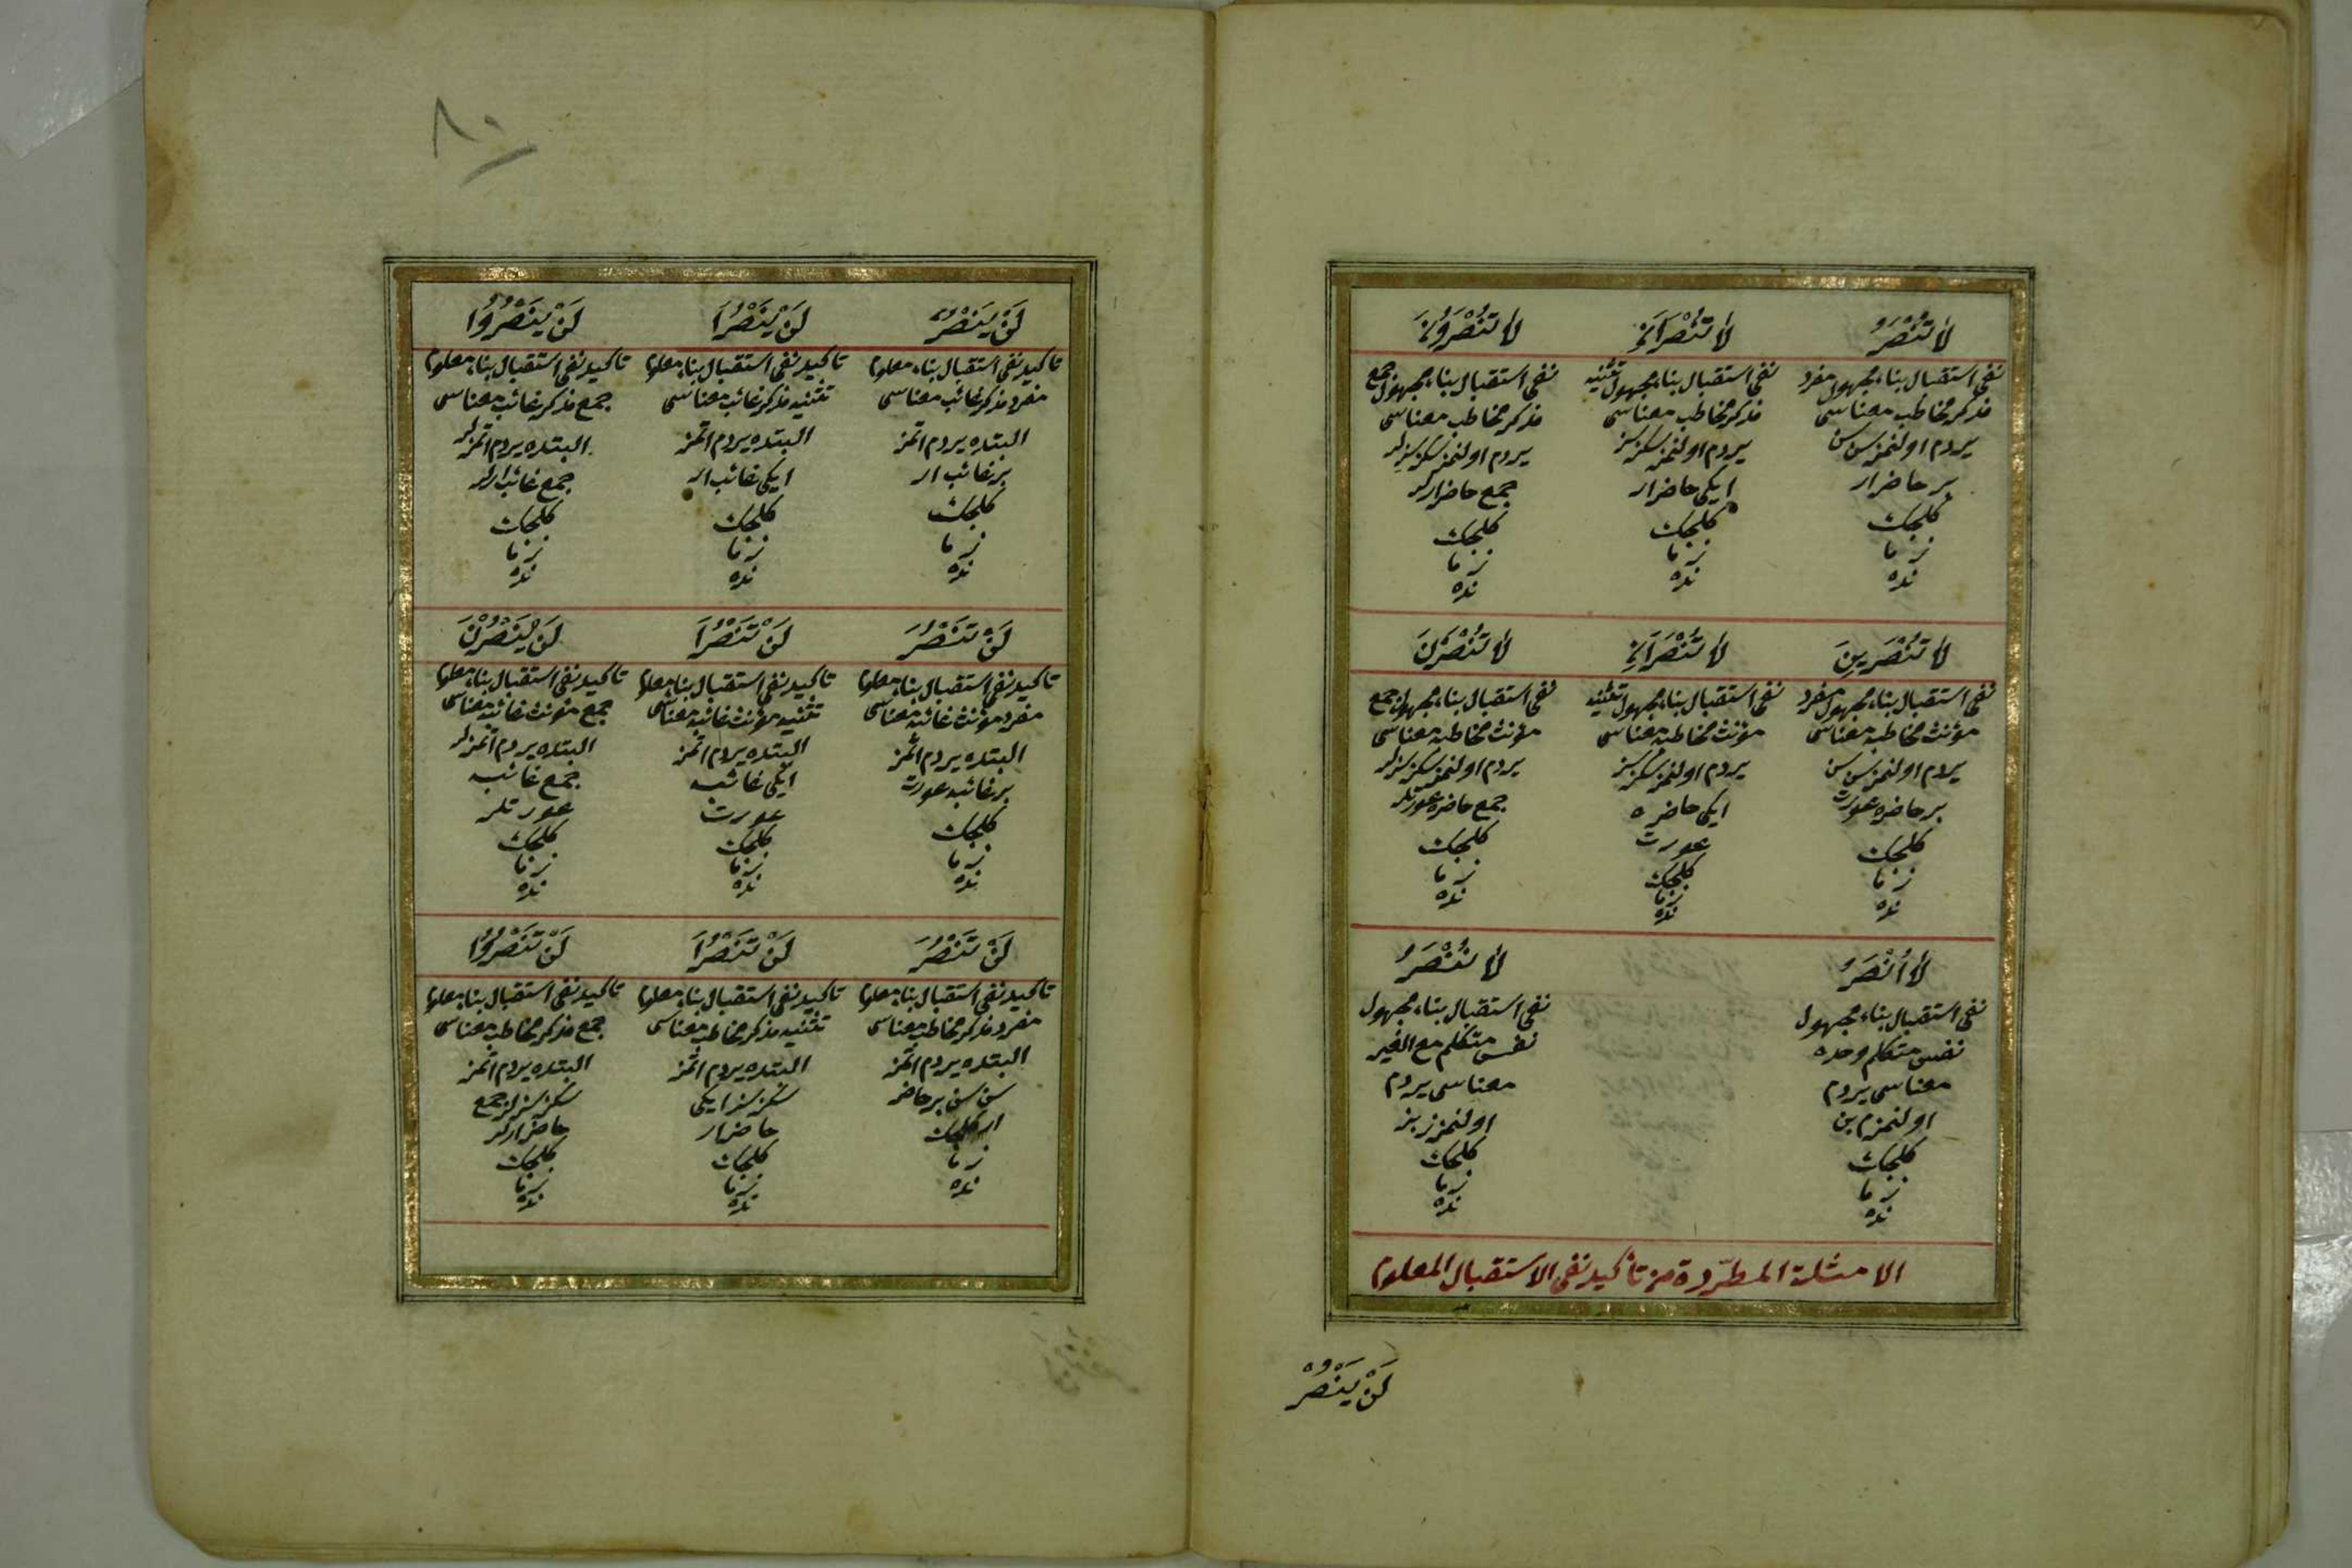 لَا تُنْصَرُ
نفی استقبال بناء مجهول مفرد
مذكر مخاطب معناسی
يردم اولنمز سن سن
بر حاضر ار
كلجك
زما
نده
لَا تُنْصَرَانِ
نفی استقبال بناء مجهول تثنيه
مذكر مخاطب معناسی
يردم اولنمز سكز سز
ايكی حاضر ار
كلجك
زما
نده
لَا تُنْصَرُونَ
نفی استقبال بناء مجهول جمع
مذكر مخاطب معناسی
يردم اولنمز سكز سزلر
جمع حاضر ارلر
كلجك
زما
نده
لَا تُنْصَرِينَ
نفی استقبال بناء مجهول مفرد
مؤنث مخاطبه معناسی
يردم اولنمز سن سن
بر حاضره عورت
كلجك
زما
نده
لَا تُنْصَرَانِ
نفی استقبال بناء مجهول تثنيه
مؤنث مخاطبه معناسی
يردم اولنمز سكز سز
ايكی حاضره
عورت
كلجك
زما
نده
لَا تُنْصَرْنَ
نفی استقبال بناء مجهول جمع
مؤنث مخاطبه معناسی
يردم اولنمز سكز سزلر
جمع حاضره عورتلر
كلجك
زما
نده
لَا أُنْصَرُ
نفی استقبال بناء مجهول
نفس متكلم وحده
معناسی يردم
اولنمزم بن
كلجك
زما
نده
لَا نُنْصَرُ
نفی استقبال بناء مجهول
نفس متكلم مع الغير
معناسی يردم
اولنمزز بز
كلجك
زما
نده
الامثلة المطّردة من تأكيد نفی الاستقبال المعلوم
لَنْ يَنْصُرَ
٨٠
لَنْ يَنْصُرَ
تاكيد نفی استقبال بناء معلوم
مفرد مذكر غائب معناسی
البته يردم اتمز
بر غائب ار
كلجك
زما
نده
لَنْ يَنْصُرَا
تاكيد نفی استقبال بناء معلوم
تثنيه مذكر غائب معناسی
البته يردم اتمز
ايكی غائب ار
كلجك
زما
نده
لَنْ يَنْصُرُوا
تاكيد نفی استقبال بناء معلوم
جمع مذكر غائب معناسی
البته يردم اتمزلر
جمع غائب ارلر
كلجك
زما
نده
لَنْ تَنْصُرَ
تاكيد نفی استقبال بناء معلوم
مفرد مؤنث غائبه معناسی
البته يردم اتمز
بر غائبه عورت
كلجك
زما
نده
لَنْ تَنْصُرَا
تاكيد نفی استقبال بناء معلوم
تثنيه مؤنث غائبه معناسی
البته يردم اتمز
ايكی غائبه
عورت
كلجك
زما
نده
لَنْ يَنْصُرْنَ
تاكيد نفی استقبال بناء معلوم
جمع مؤنث غائبه معناسی
البته يردم اتمزلر
جمع غائبه
عورتلر
كلجك
زما
نده
لَنْ تَنْصُرَ
تاكيد نفی استقبال بناء معلوم
مفرد مذكر مخاطب معناسی
البته يردم اتمز
سن سن بر حاضر
ار كلجك
زما
نده
لَنْ تَنْصُرَا
تاكيد نفی استقبال بناء معلوم
تثنيه مذكر مخاطب معناسی
البته يردم اتمز
سكز سز ايكی
حاضر ار
كلجك
زما
نده
لَنْ تَنْصُرُوا
تاكيد نفی استقبال بناء معلوم
جمع مذكر مخاطب معناسی
البته يردم اتمز
سكز سزلر جمع
حاضر ارلر
كلجك
زما
نده